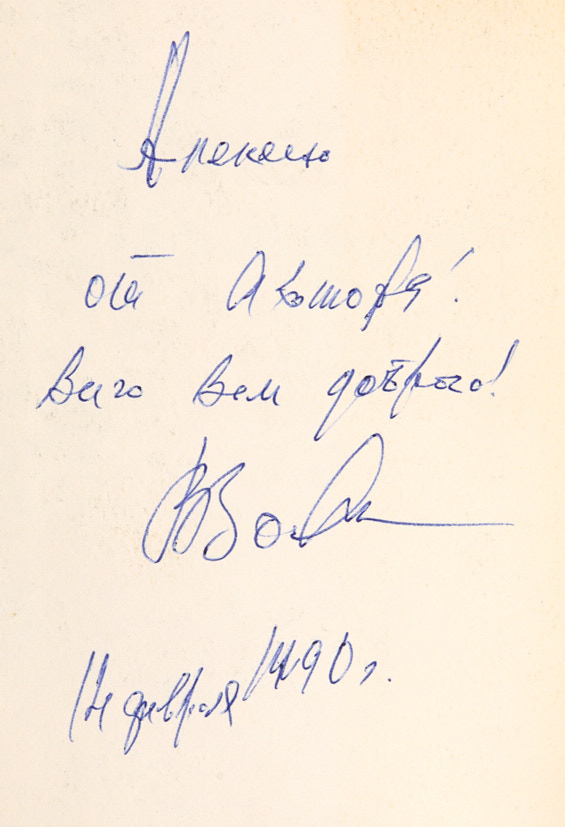 Алексею
от Автора!
Всего Вам доброго!
февраля 1990 г.